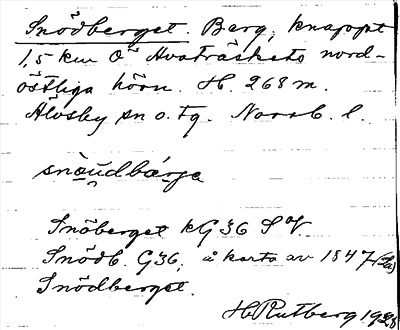 Snödberget. Berg, knappt
1,5 km O om Avaträskets nord-
östliga hörn. H. 268 m.
Älvsby sn o. tg. Norrb. l.
snöudbärje
Snöberget kG36 SV
Snödb. G36, å karta av 1847
Snödberget.
H Rutberg 1928